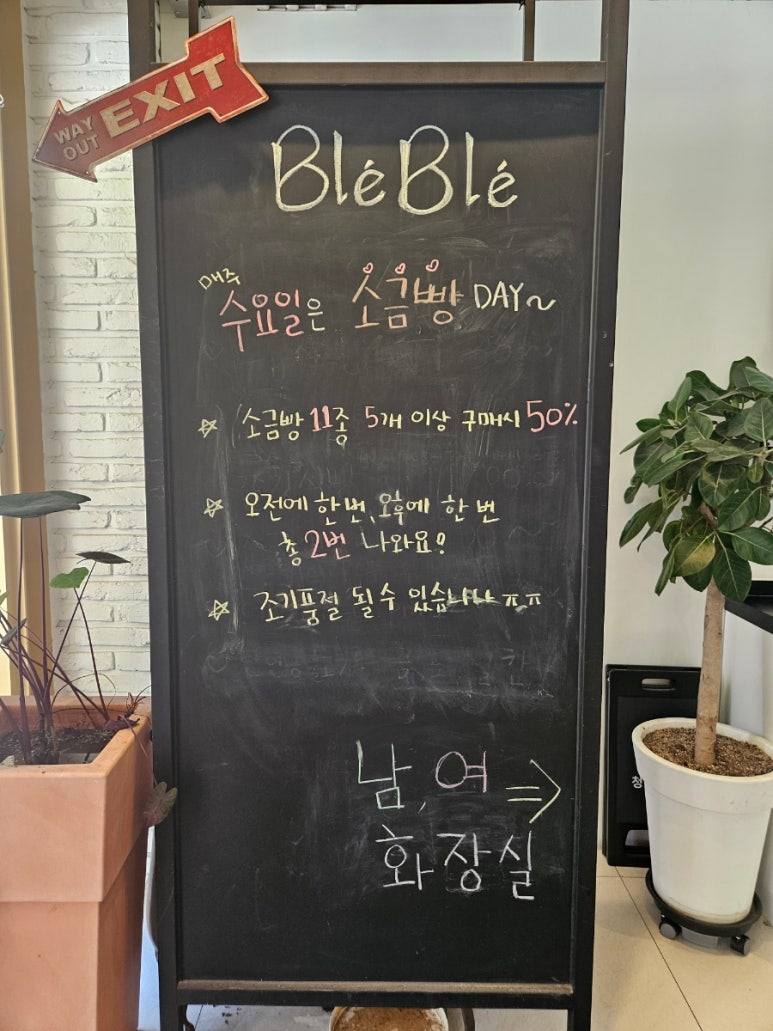 WAY OUT EXIT
Blé Blé
매주
수요일은 소금빵 DAY~
☆ 소금빵 11종 5개 이상 구매시 50%
☆ 오전에 한번, 오후에 한 번
총 2번 나와요!
☆ 조기품절 될 수 있습니다 ㅠㅠ
남, 여 ⇒
화장실
청